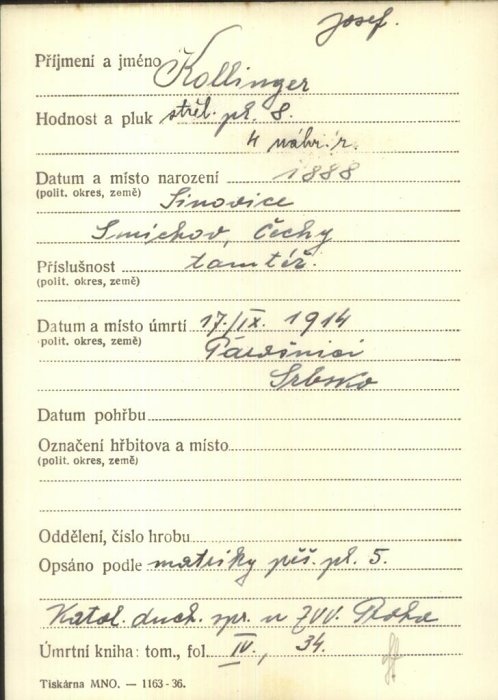 Josef.
Příjmení a jméno Kollinger
Hodnost a pluk střel. pl. 8.
4 náhr. r.
Datum a místo narození 1888
(polit. okres, země)
Sinovice
Smichov, Čechy
Příslušnost tamtéž.
(polit. okres, země)
Datum a místo úmrtí 17./IX. 1914
(polit. okres, země)
Srbsko
Datum pohřbu
Označení hřbitova a místo
(polit. okres, země)
Oddělení, číslo hrobu
Opsáno podle matriky pěš. pl. 5.
Katol. duch. spr. u ZVV. Praha
Úmrtní kniha: tom., fol. IV., 34.
Tiskárna MNO. — 1163-36.